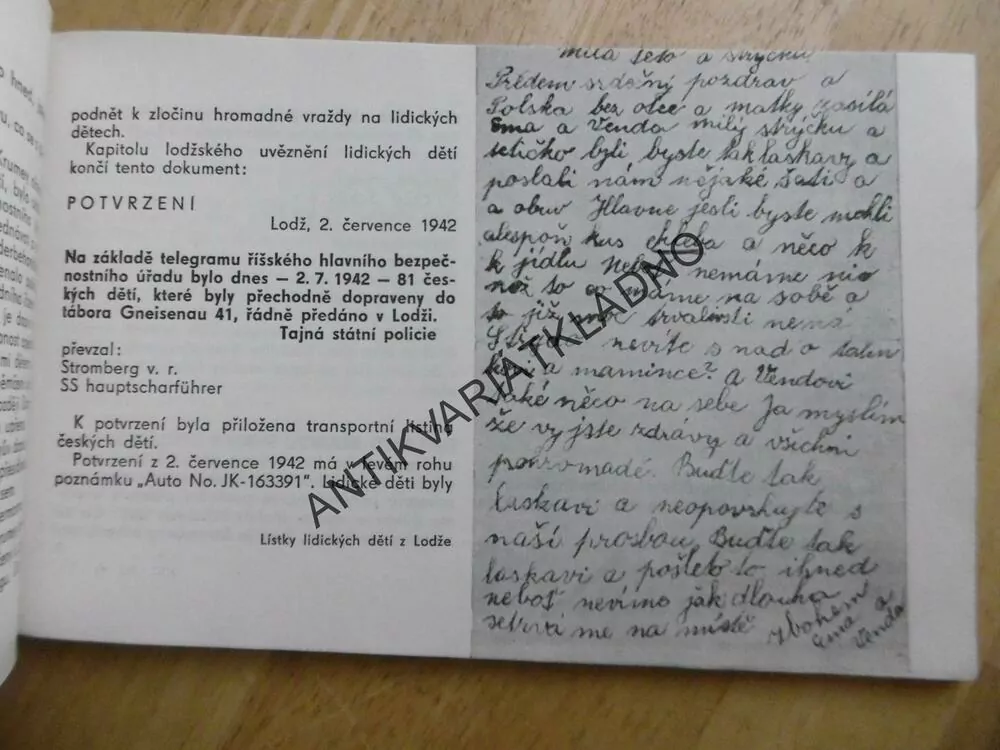 podnět k zločinu hromadné vraždy na lidických
dětech.
Kapitolu lodžského uvěznění lidických dětí
končí tento dokument:
POTVRZENÍ
Lodž, 2. července 1942
Na základě telegramu říšského hlavního bezpeč-
nostního úřadu bylo dnes — 2. 7. 1942 — 81 čes-
kých dětí, které byly přechodně dopraveny do
tábora Gneisenau 41, řádně předáno v Lodži.
Tajná státní policie
převzal:
Stromberg v. r.
SS hauptscharführer
K potvrzení byla přiložena transportní listina
českých dětí.
Potvrzení z 2. července 1942 má v levém rohu
poznámku „Auto No. JK-163391". Lidické děti byly
Lístky lidických dětí z Lodže
Milá teto a strýčku
Předem srdečný pozdrav a
Polska bez otce a matky zasílá
Ema a Venda milý strýčku a
tetičko byli, byste tak laskavy a
poslali nám nějaké šati a
a obuv Hlavne jesli byste mohli
alespoň kus chleba a něco k
k jídlu nemáme nic
než to co máme na sobě a
to již trvalosti nemá
nevíte s nad o tatin
a mamince? a Vendovi
také něco na sebe Ja myslím
že vy jste zdrávy a všichni
pohromadě. Buďte tak
laskavi a neopovrhujte s
naší prosbou Buďte tak
laskavi a pošlete to ihned
neboť nevímo jak dlouho
setrvá me na místě
Zbohem
Ema a
Venda
ANTIKVARIATKLADNO